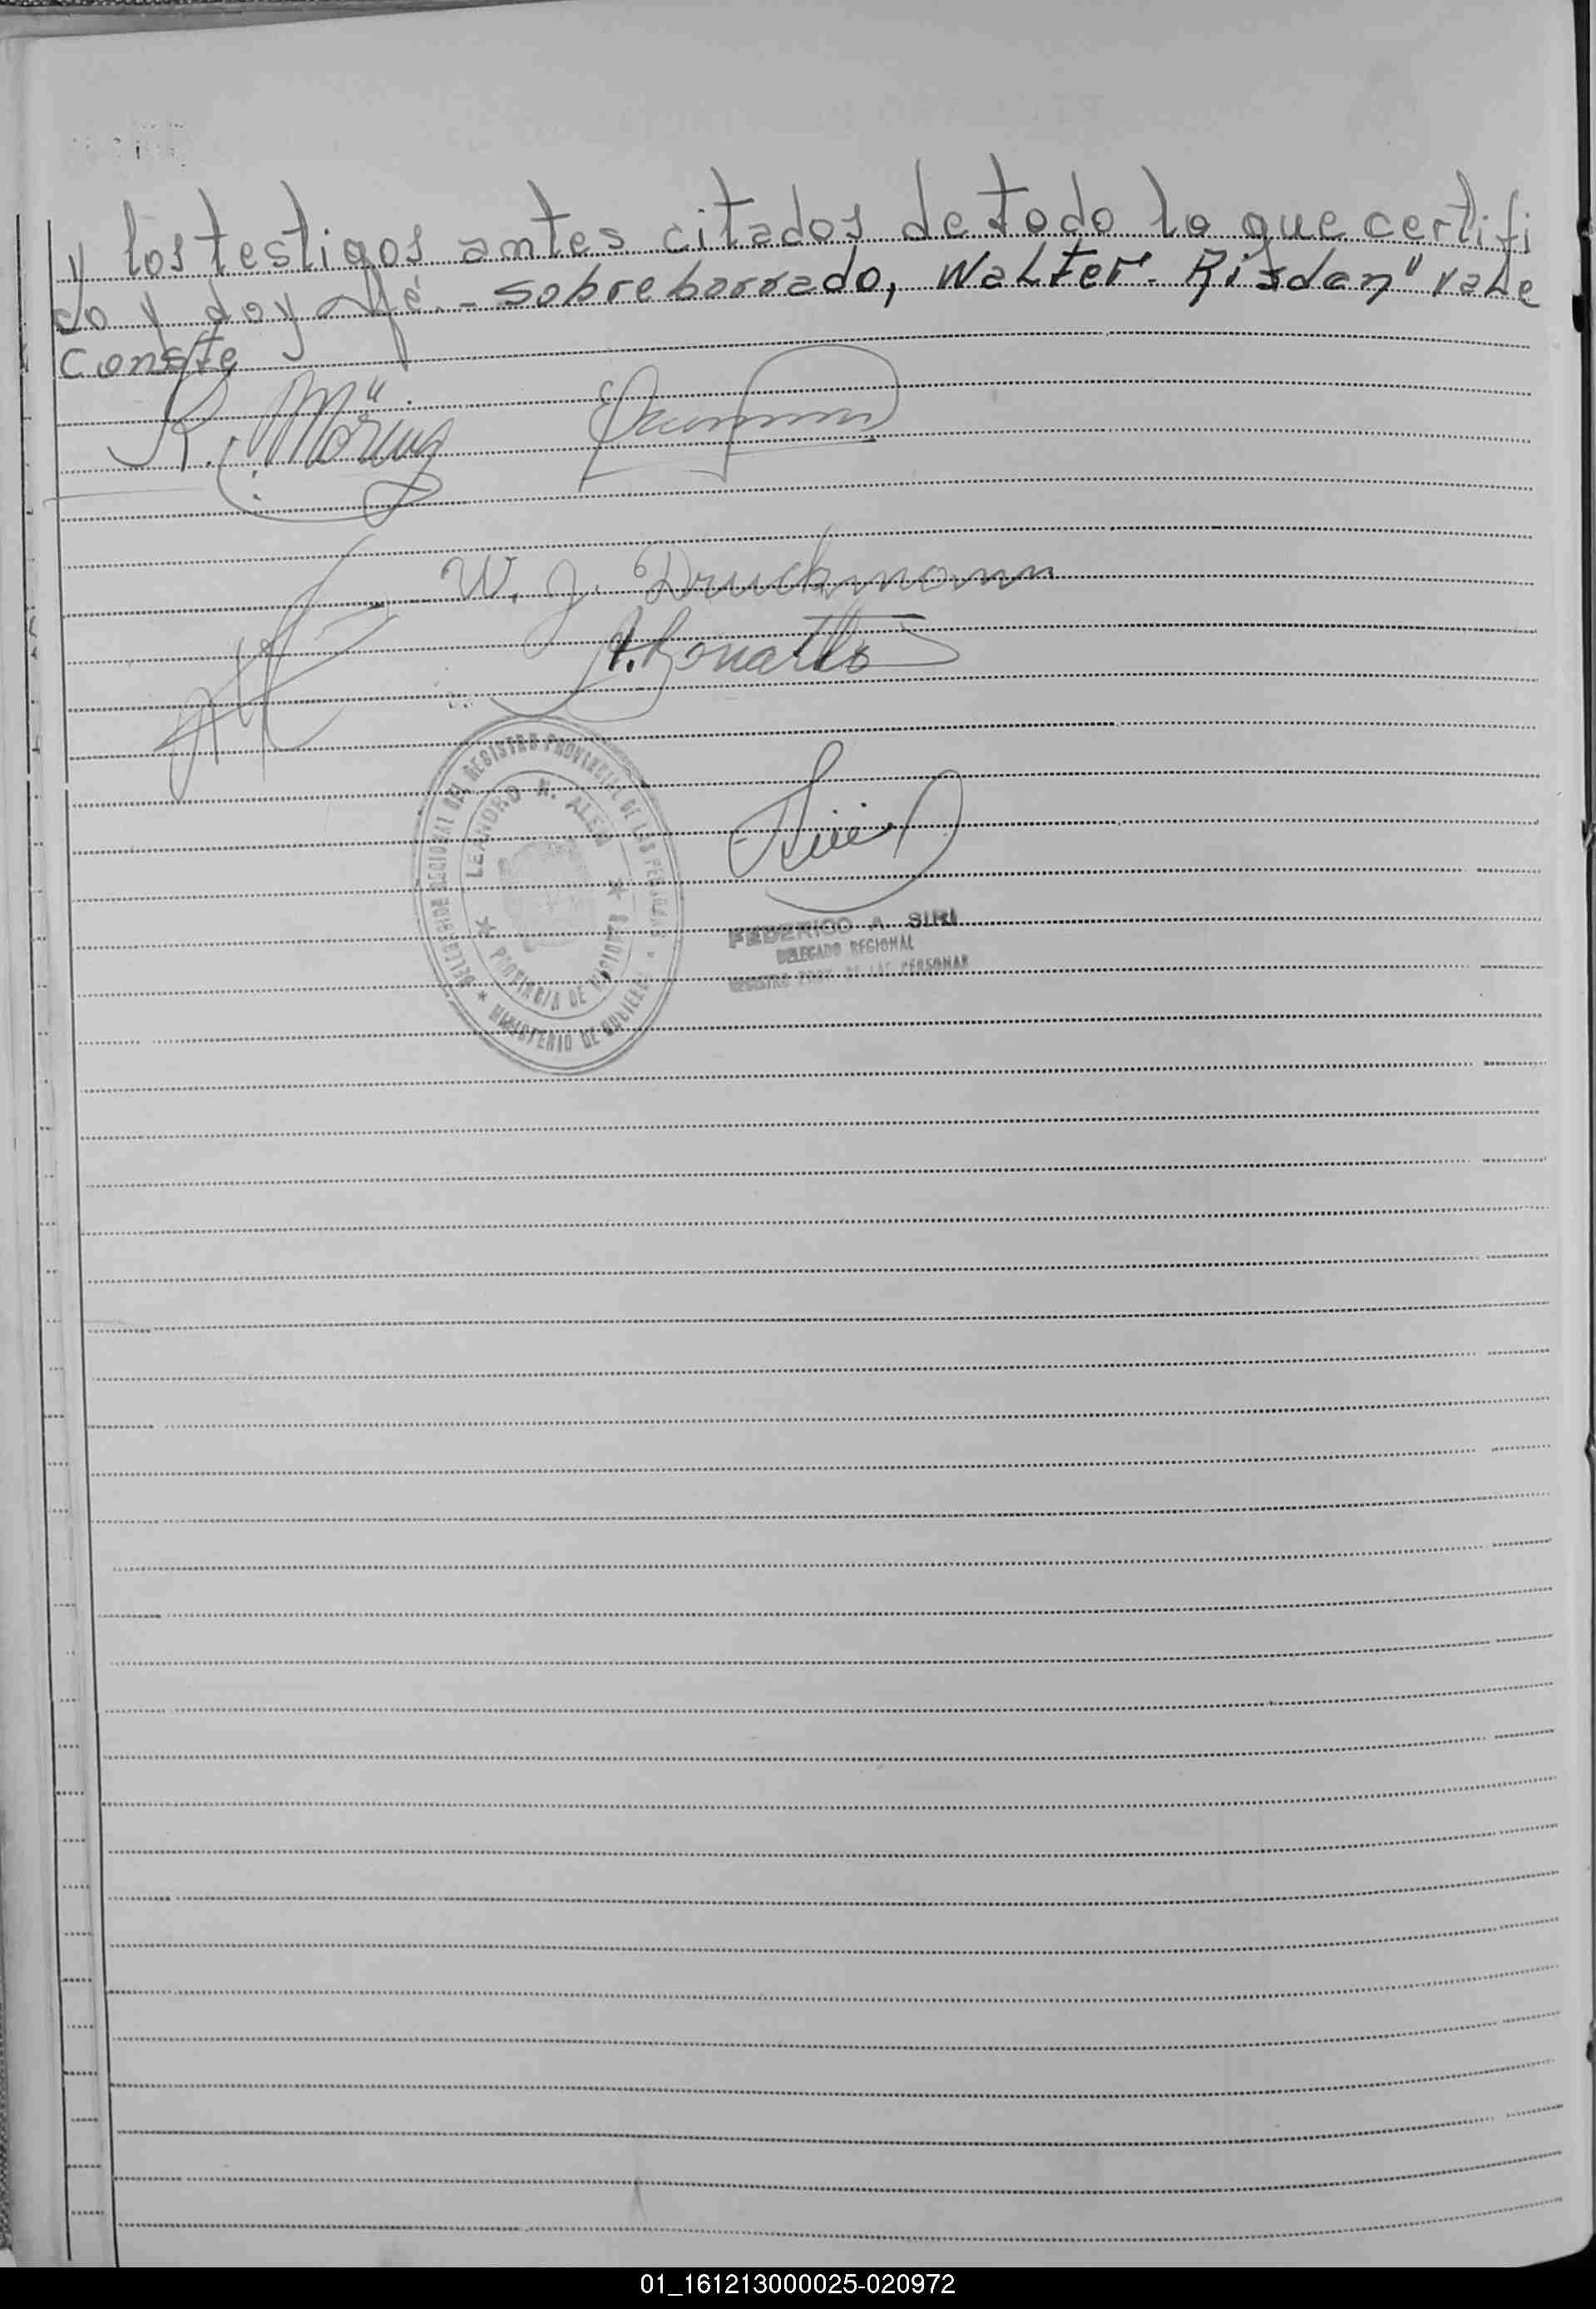 y los testigos antes citados de todo lo que certifi
co y doy fé.- sobreborrado, Walter. Risdan" vale
conste
W. J. Druckmann
DELEGACION REGIONAL DEL REGISTRO PROVINCIAL DE LAS PERSONAS
LEANDRO N. ALEM
PROVINCIA DE MISIONES
MINISTERIO DE GOBIERNO
FEDERICO A. SIRI
DELEGADO REGIONAL
REGISTRO PROV. DE LAS PERSONAS
01_161213000025-020972